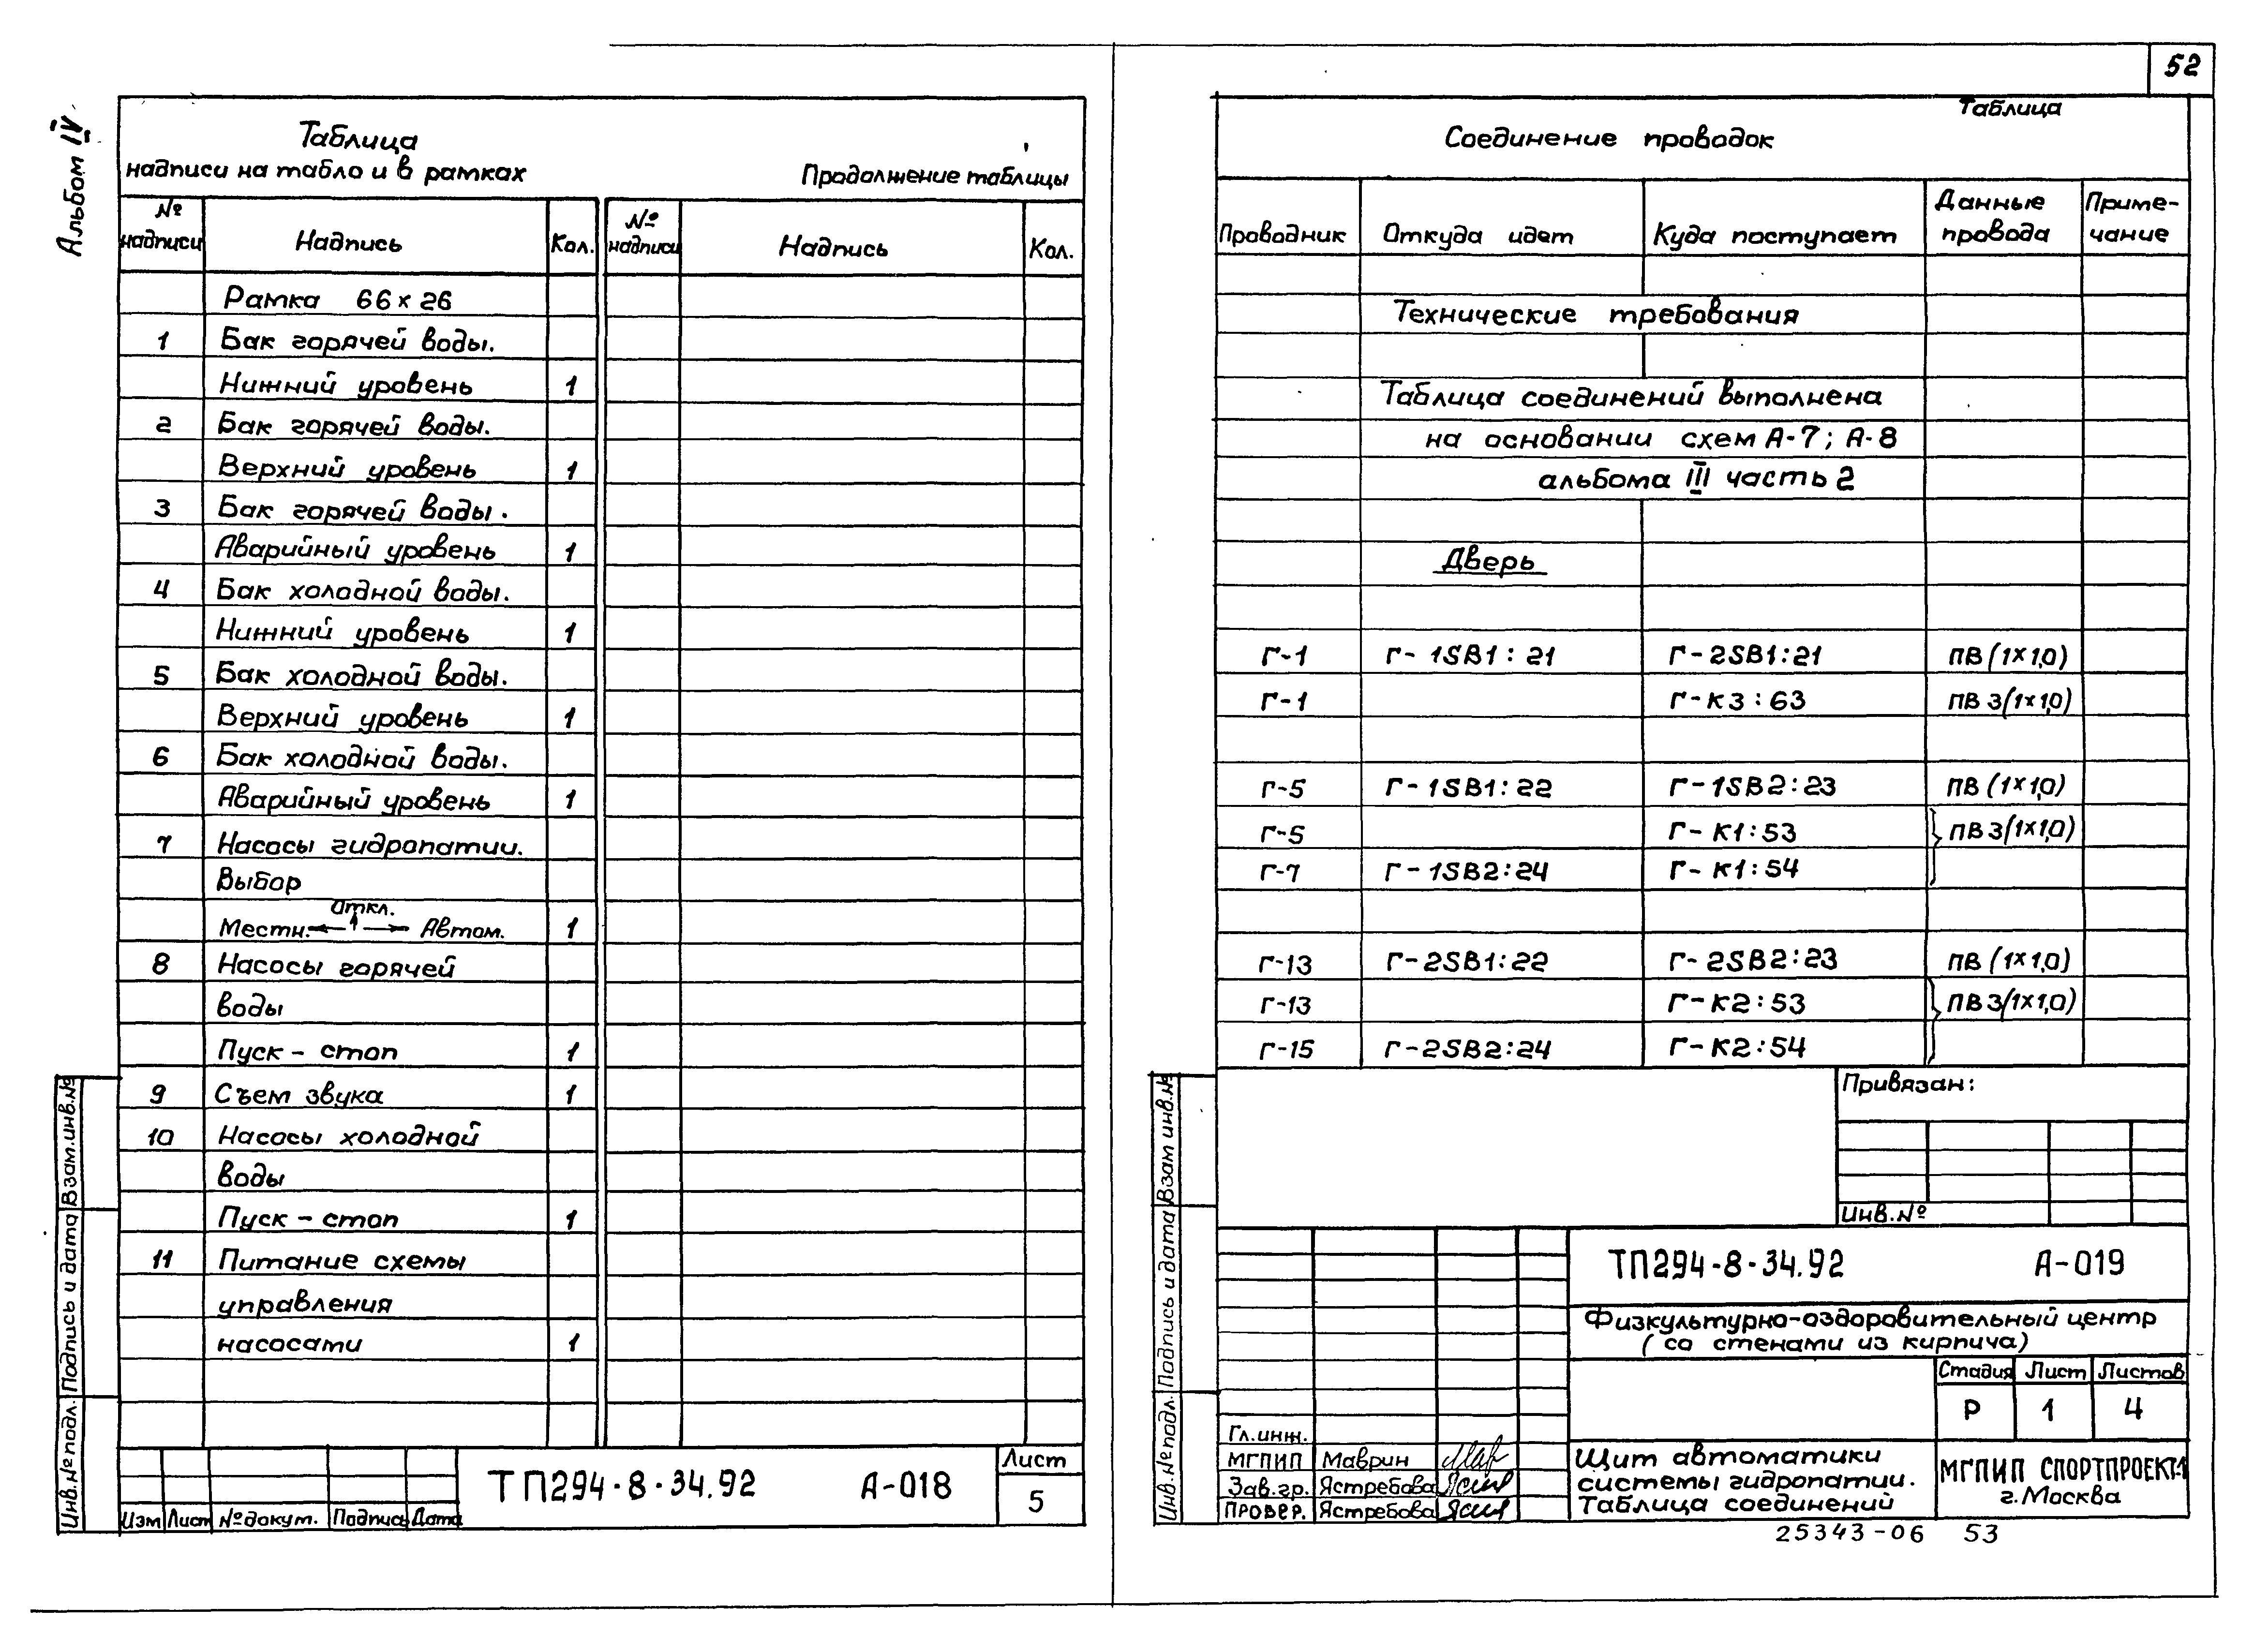 52
Альбом IV
Таблица
надписи на табло и в рамках
Продолжение таблицы
№ надписи Надпись Кол. № надписи Надпись Кол.
Рамка 66×26
1 Бак горячей воды.
Нижний уровень 1
2 Бак горячей воды.
Верхний уровень 1
3 Бак горячей воды.
Аварийный уровень 1
4 Бак холодной воды.
Нижний уровень 1
5 Бак холодной воды.
Верхний уровень 1
6 Бак холодной воды.
Аварийный уровень 1
7 Насосы гидропатии.
Выбор
Откл.
Местн. ← ↑ → Автом. 1
8 Насосы горячей
воды
Пуск - стоп 1
9 Съем звука 1
10 Насосы холодной
воды
Пуск - стоп 1
11 Питание схемы
управления
насосами 1
Инв.№ подл. Подпись и дата Взам.инв.№
Изм Лист № докум. Подпись Дата
ТП294-8-34.92 А-018
Лист
5
Таблица
Соединение проводок
Проводник Откуда идет Куда поступает Данные провода Приме-чание
Технические требования
Таблица соединений выполнена
на основании схем А-7; А-8
альбома III часть 2
Дверь
Г-1 Г-1SB1:21 Г-2SB1:21 ПВ(1×1,0)
Г-1 Г-К3:63 ПВ3(1×1,0)
Г-5 Г-1SB1:22 Г-1SB2:23 ПВ(1×1,0)
Г-5 Г-К1:53 ПВ3(1×1,0)
Г-7 Г-1SB2:24 Г-К1:54
Г-13 Г-2SB1:22 Г-2SB2:23 ПВ(1×1,0)
Г-13 Г-К2:53 ПВ3(1×1,0)
Г-15 Г-2SB2:24 Г-К2:54
Привязан:
Инв.№
Инв.№ подл. Подпись и дата Взам инв.№
ТП294-8-34.92 А-019
Физкультурно-оздоровительный центр
(со стенами из кирпича)
Стадия Лист Листов
Р 1 4
Гл.инж.
МГПИП Маврин
Зав.гр. Ястребова
Провер. Ястребова
Щит автоматики
системы гидропатии.
Таблица соединений
МГПИП СПОРТПРОЕКТ-1
г.Москва
25343-06 53